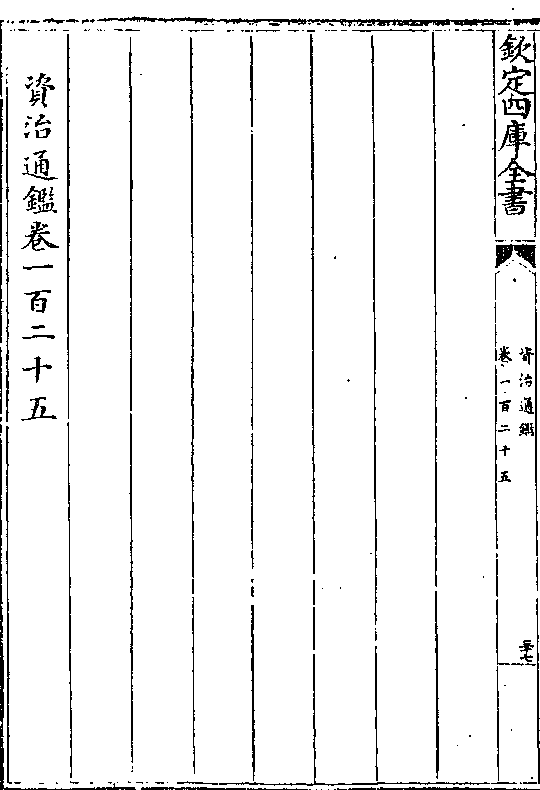 欽定四庫全書
資治通鑑
卷一百二十五
三十七
資治通鑑卷一百二十五